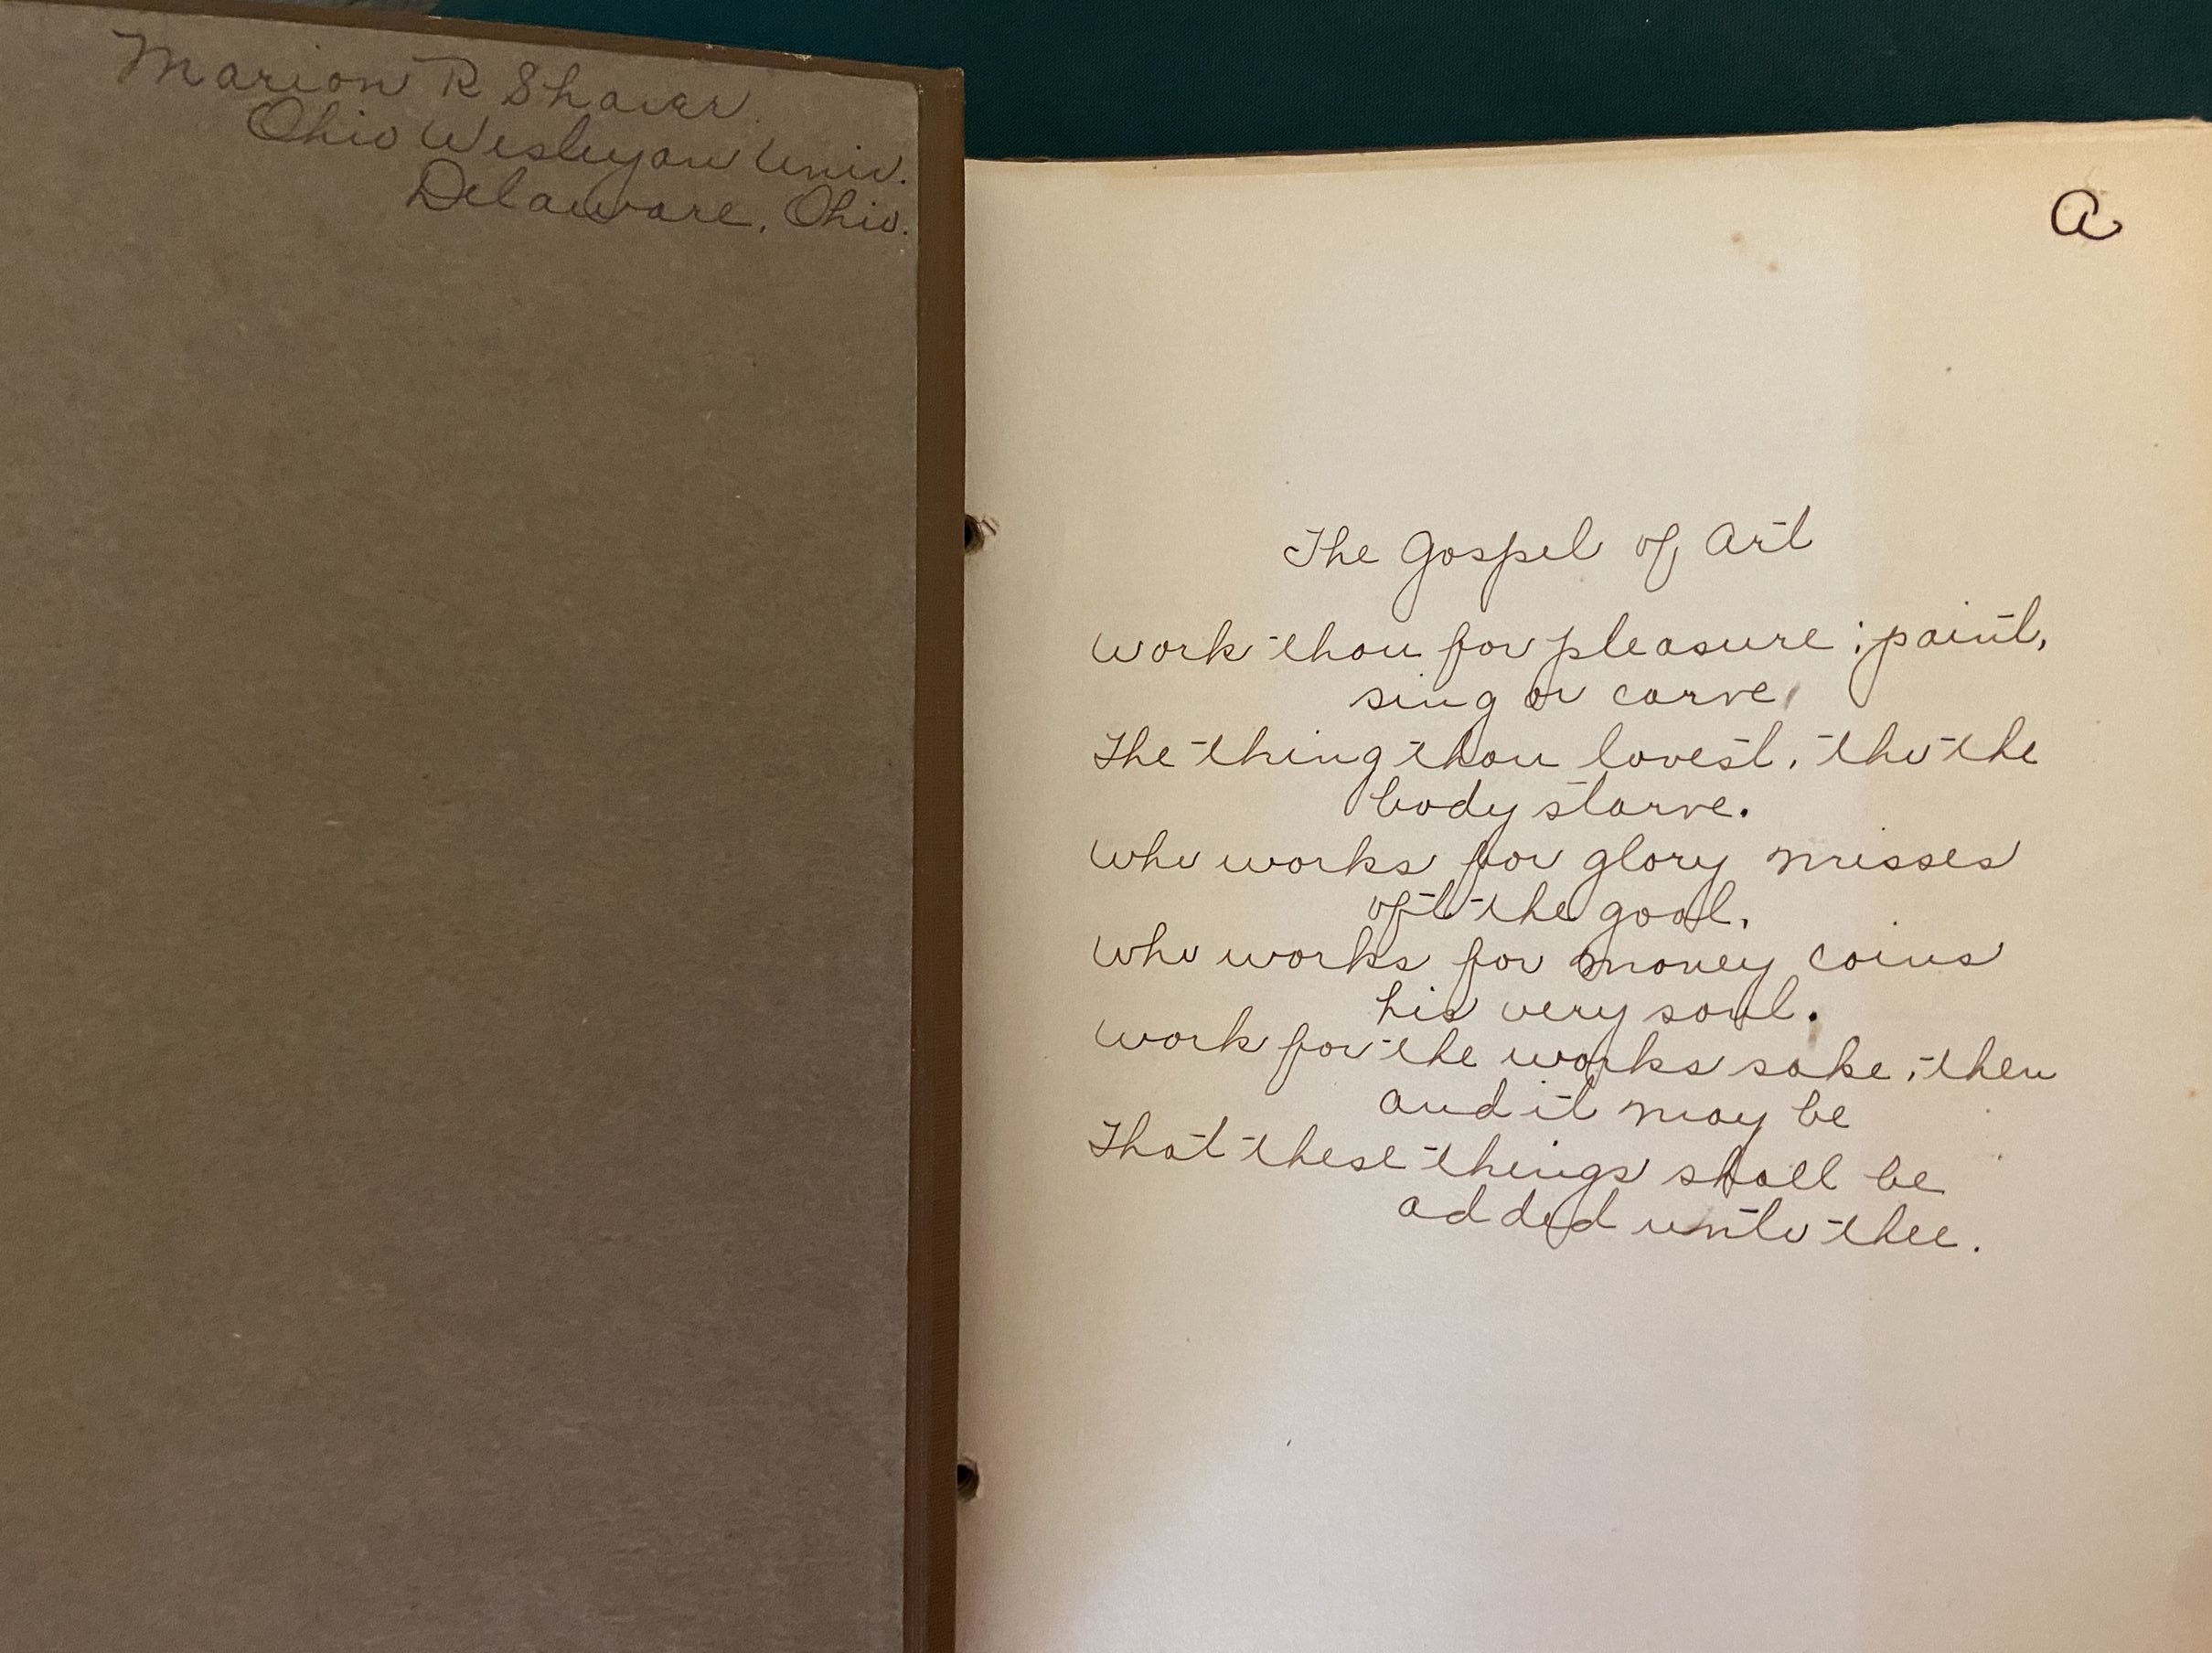 Marion R Shaver
Ohio Wesleyan Univ.
Delaware, Ohio.
a
The Gospel of Art
Work thou for pleasure; paint,
sing or carve
The thing thou lovest, tho the
body starve.
Who works for glory misses
oft the goal,
Who works for money coins
his very soul.
Work for the works sake, then
and it may be
That these things shall be
added unto thee.